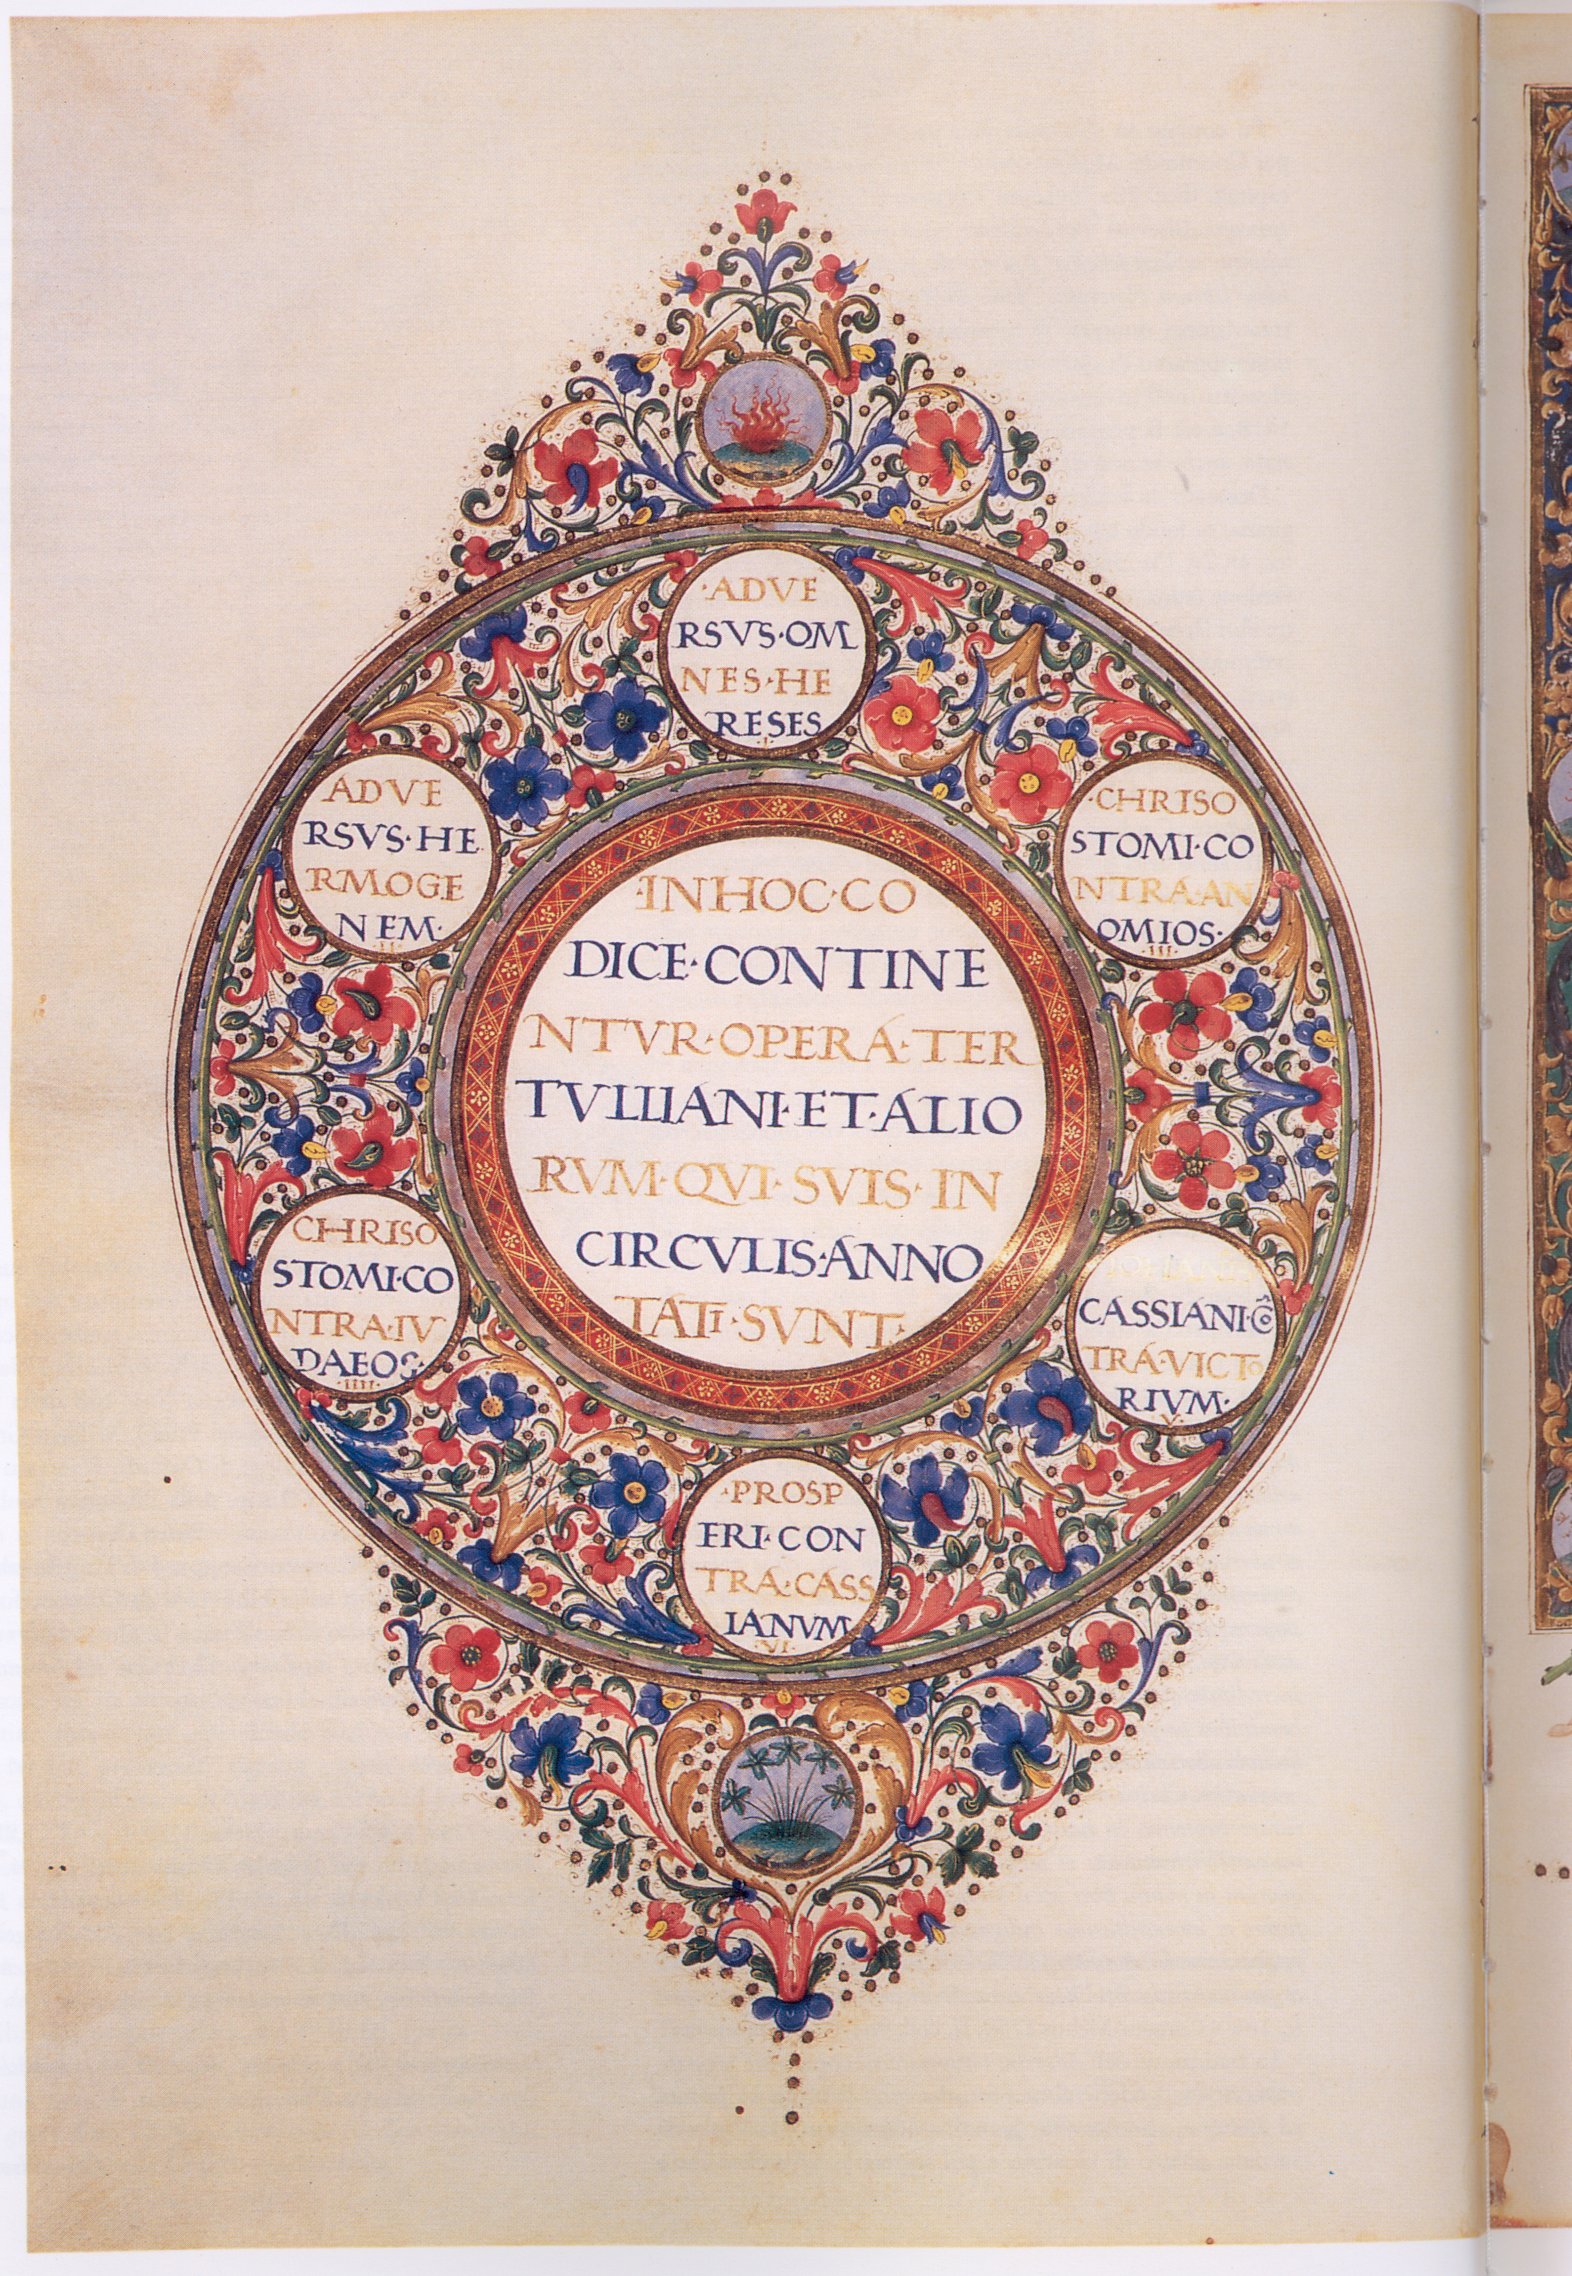 ·ADVE
RSVS·OM
NES·HE
RESES
I
ADVE
RSVS·HE
RMOGE
NEM·
II
·CHRISO
STOMI·CO
NTRA·AN
OMIOS·
III
·IN HOC·CO
DICE·CONTINE
NTVR·OPERA·TER
TVLLIANI·ET·ALIO
RVM·QVI·SVIS·IN
CIRCVLIS·ANNO
TATI·SVNT·
CHRISO
STOMI·CO
NTRA·IV
DAEOS·
IIII
IOHANNIS
CASSIANI·CÕ
TRA·VICTO
RIVM·
V
·PROSP
ERI·CON
TRA·CASS
IANVM
VI